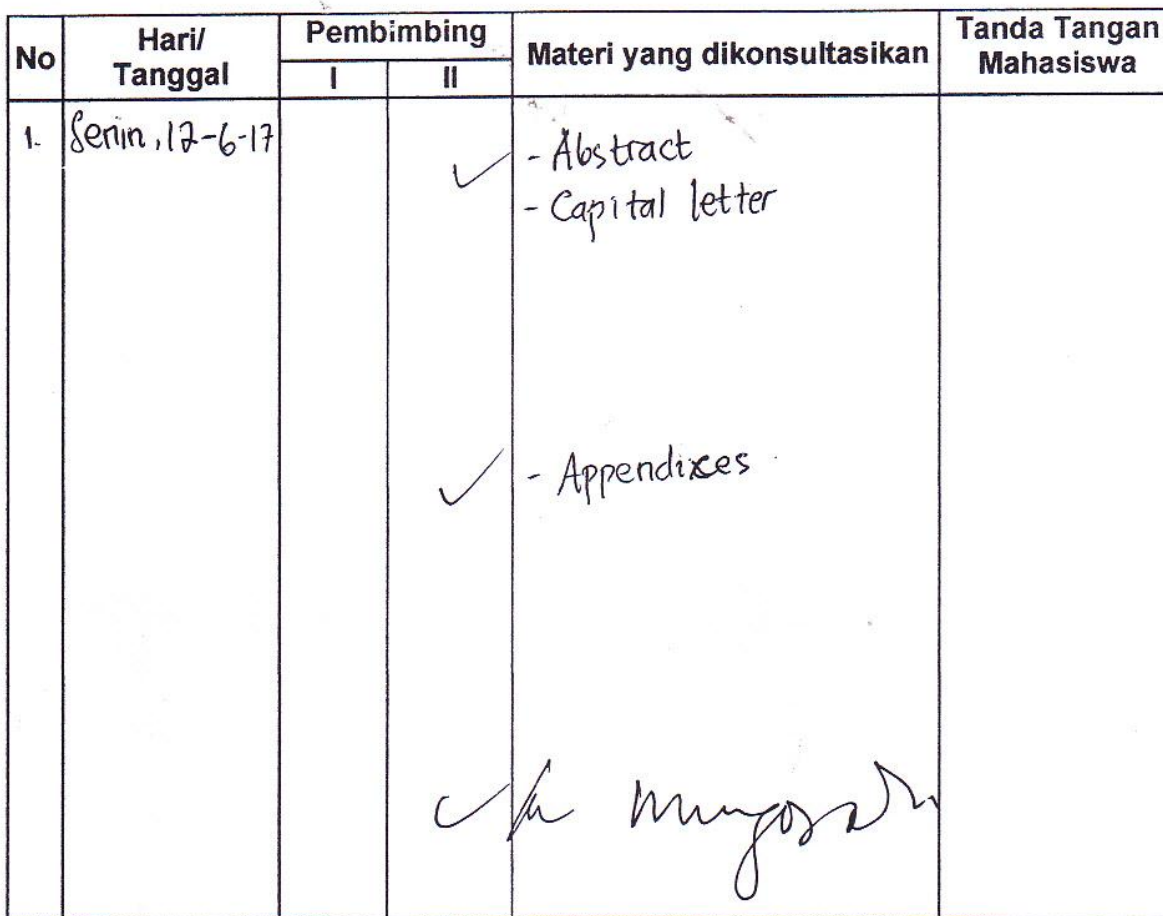 No
Hari/
Tanggal
Pembimbing
I II
Materi yang dikonsultasikan
Tanda Tangan
Mahasiswa
1. Senin, 12-6-17
✓ - Abstract
- Capital letter
✓ - Appendixces
✓